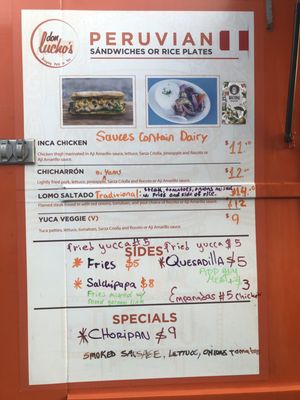 don
Lucho's
PERUVIAN
SÁNDWICHES OR RICE PLATES
Sauces Contain Dairy
INCA CHICKEN $11.00
Chicken thigh marinated in Aji Amarillo sauce, lettuce, Sarza Criolla, pineapple and Rocoto or Aji Amarillo sauce.
CHICHARRÓN w/ Yams $12.00
Lightly fried pork, lettuce, pineapple, Sarza Criolla and Rocoto or Aji Amarillo sauce.
LOMO SALTADO Traditional: steak, tomatoes, onions mixed w/ fries and side of rice. $14.00
$12
YUCA VEGGIE (V) $9
Yuca patties, lettuce, tomatoes, Sarza Criolla and Rocoto or Aji Amarillo sauce.
SIDES
fried yucca $5
fried yucca $5
* Fries $5
* Quesadilla $5
* Salchipapa $8
Add any
3
Fries mixed w/
Empanadas $5 Chicken
SPECIALS
* CHORIPAN $9
SMOKED SAUSAGE, LETTUCE, ONIONS tomatoes